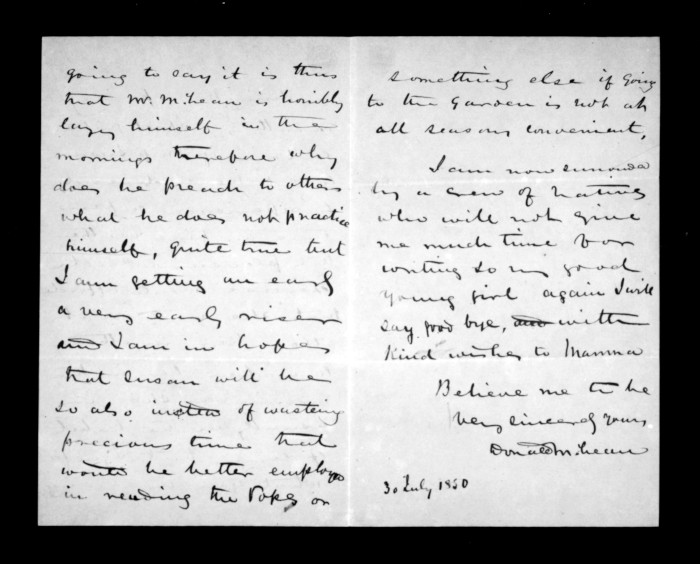 going to say it is thus
that Mr. McLean is horribly
lazy himself in the
mornings therefore why
does he preach to others
what he does not practice
himself, quite true but
I am getting an early
a very early riser
and I am in hopes
that Susan will be
so also instead of wasting
precious time that
would be better employed
in reading the or
something else if going
to the Garden is not at
all seasons convenient,
I am now surrounded
by a crew of natives
who will not give
me much time for
writing so my good
young girl again I will
say good bye, and with
kind wishes to Mamma
Believe me to be
Very sincerely yours
Donald McLean
30 July 1850